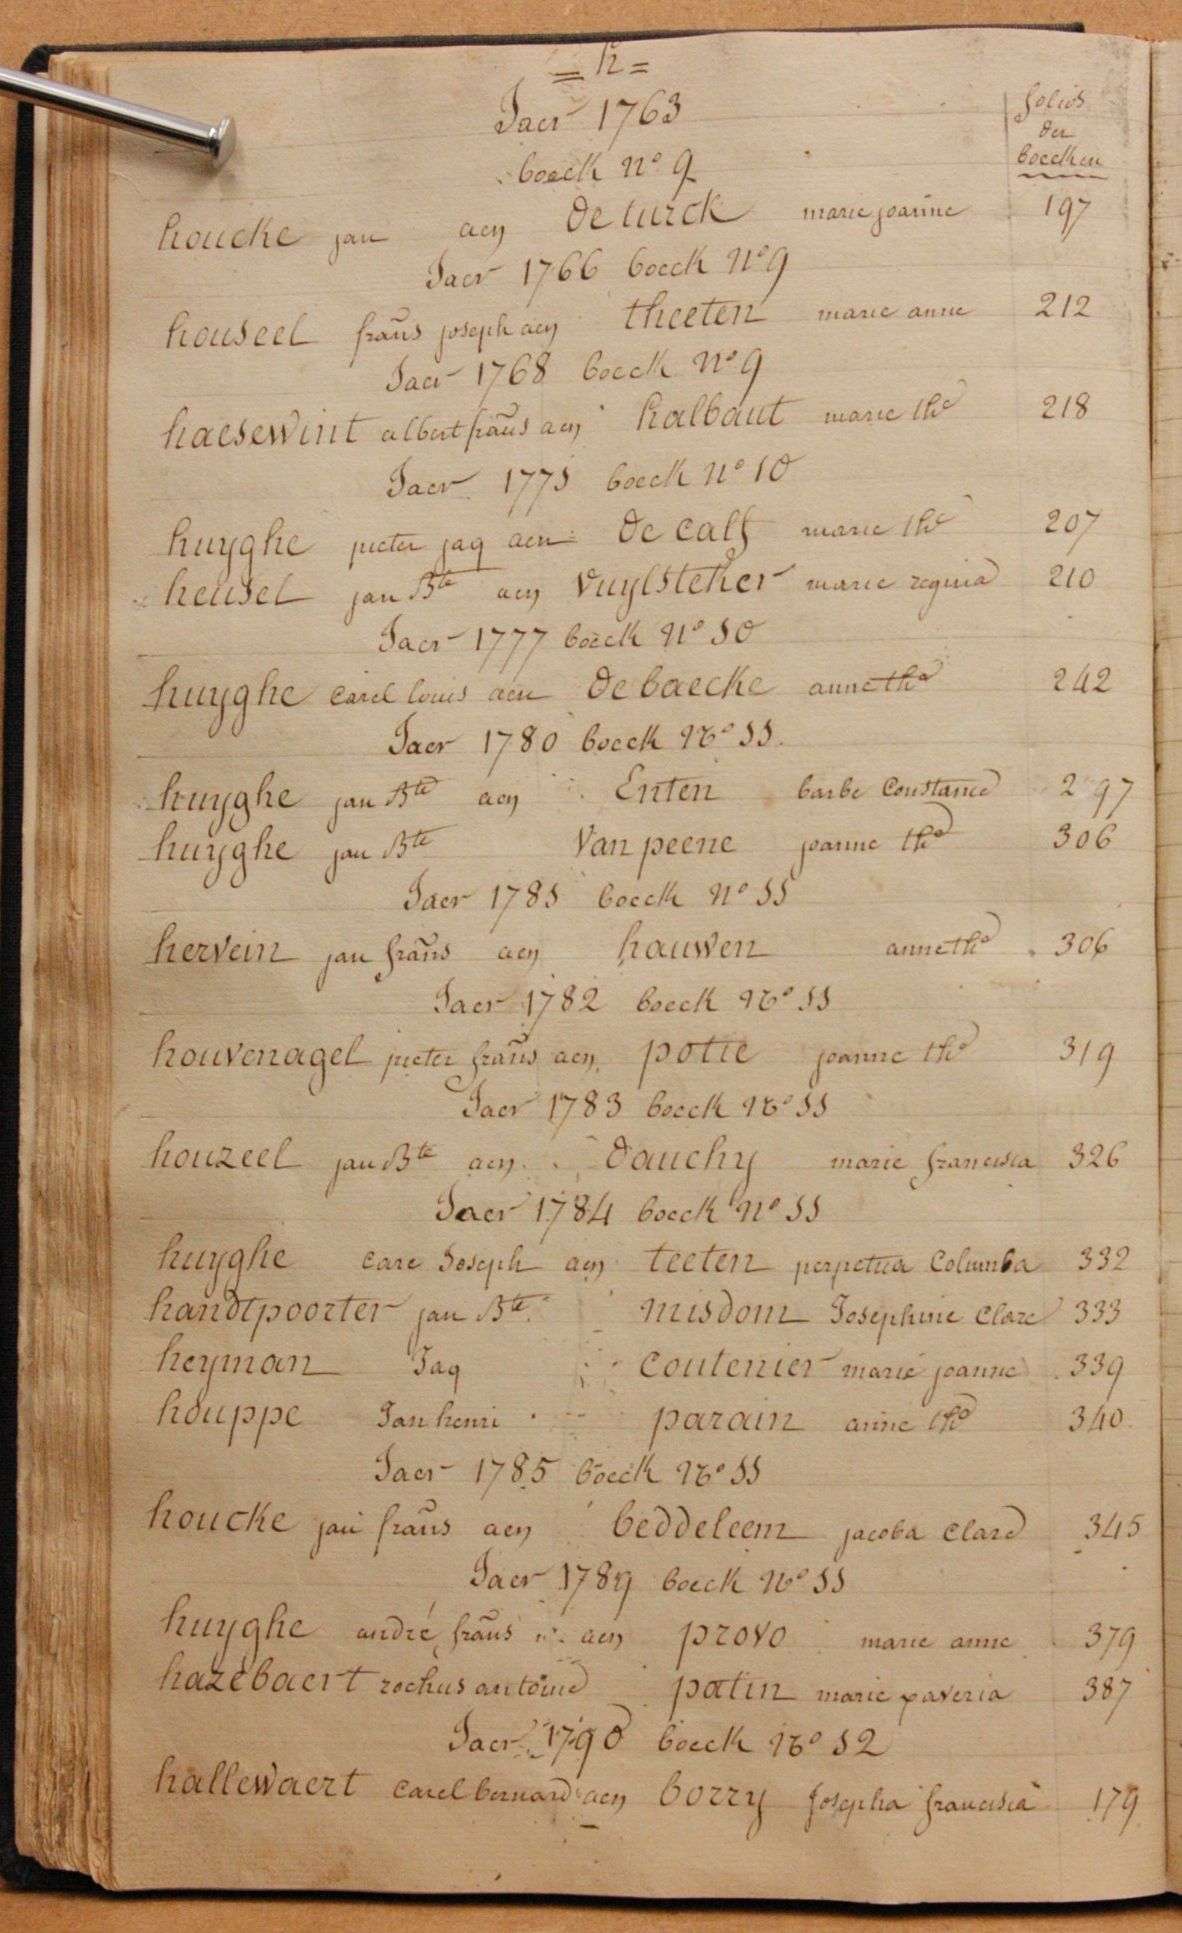 = h =
Jaer 1763
folios
der
boecken
boeck n° 9
houcke jan aen de turck marie joanne 197
Jaer 1766 boeck n° 9
houseel frans joseph aen theeten marie anne 212
Jaer 1768 boeck n° 9
haesewint albert frans aen halbaut marie the 218
Jaer 1771 boeck n° 10
huyghe pieter jaq aen de calf marie the 207
heusel jan Bte aen vuylsteker marie regina 210
Jaer 1777 boeck n° 10
huyghe carel louis aen de baecke anne the 242
Jaer 1780 boeck N° 11
huyghe jan Bte aen Enten barbe Constance 297
huyghe jan Bte van peene joanne the 306
Jaer 1781 boeck n° 11
hervein jan frans aen hauwen anne the 306
Jaer 1782 boeck N° 11
houvenagel pieter frans aen potie joanne the 319
Jaer 1783 boeck N° 11
houzeel jan Bte aen dauchy marie francisca 326
Jaer 1784 boeck n° 11
huyghe care Joseph aen teeten perpetua Columba 332
handtpoorter jan Bte misdom Josephine Clare 333
heyman Jaq coutenier marie joanne 339
houppe Jan henri parain anne the 340
Jaer 1785 boeck N° 11
houcke jan frans aen beddeleem jacoba Clare 345
Jaer 1789 boeck N° 11
huyghe andré frans aen provo marie anne 379
hazebaert rochus antoine patin marie xaveria 387
Jaer 1790 boeck N° 12
hallewaert Carel bernard aen borry Josepha francisca 179